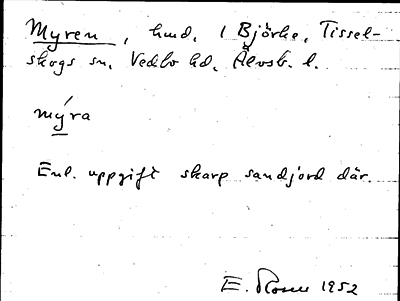 Myren, hmd. 1 Björke, Tissel-
skogs sn. Vedbo hd, Älvsb. l.
mýra
Enl. uppgift skarp sandjord där.
E. Rosm 1952